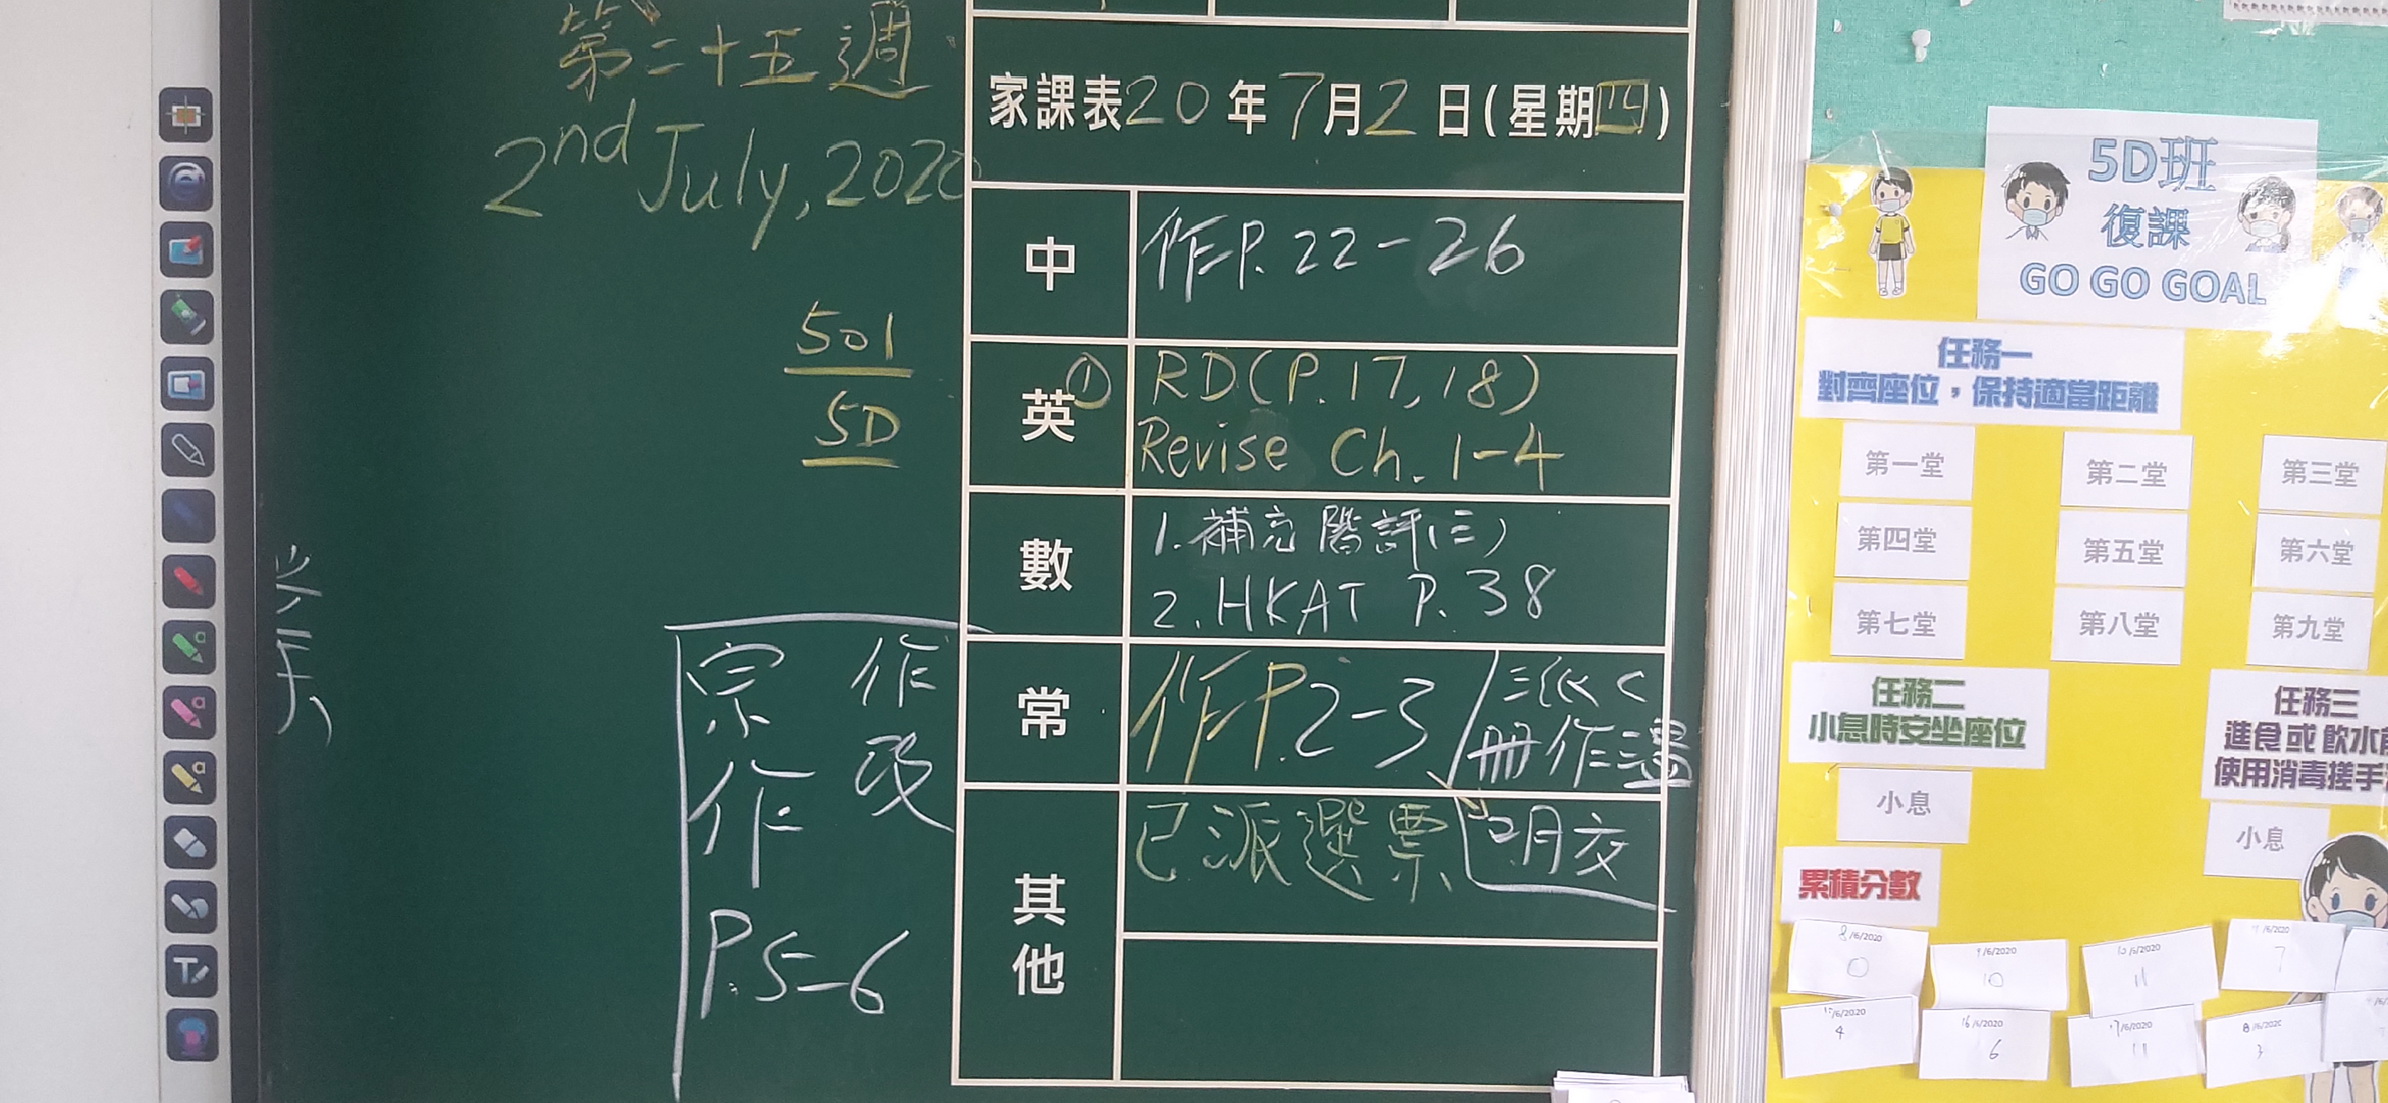 第二十五週
2nd July, 2020
501
5D
家課表20年7月2日(星期四)
中
作P. 22-26
英
① RD(P. 17, 18)
Revise Ch. 1-4
數
1. 補充階評(三)
2. HKAT P. 38
常
作P. 2-3
冊作溫
其他
已派選票
明交
宗作
P. 5-6
作
5D班
復課
GO GO GOAL
任務一
對齊座位，保持適當距離
第一堂
第二堂
第三堂
第四堂
第五堂
第六堂
第七堂
第八堂
第九堂
任務二
小息時安坐座位
小息
任務三
進食或飲水前
使用消毒搓手
小息
累積分數
8/6/2020
0
9/6/2020
10
10/6/2020
11
/6/2020
7
15/6/2020
4
16/6/2020
6
17/6/2020
11
3